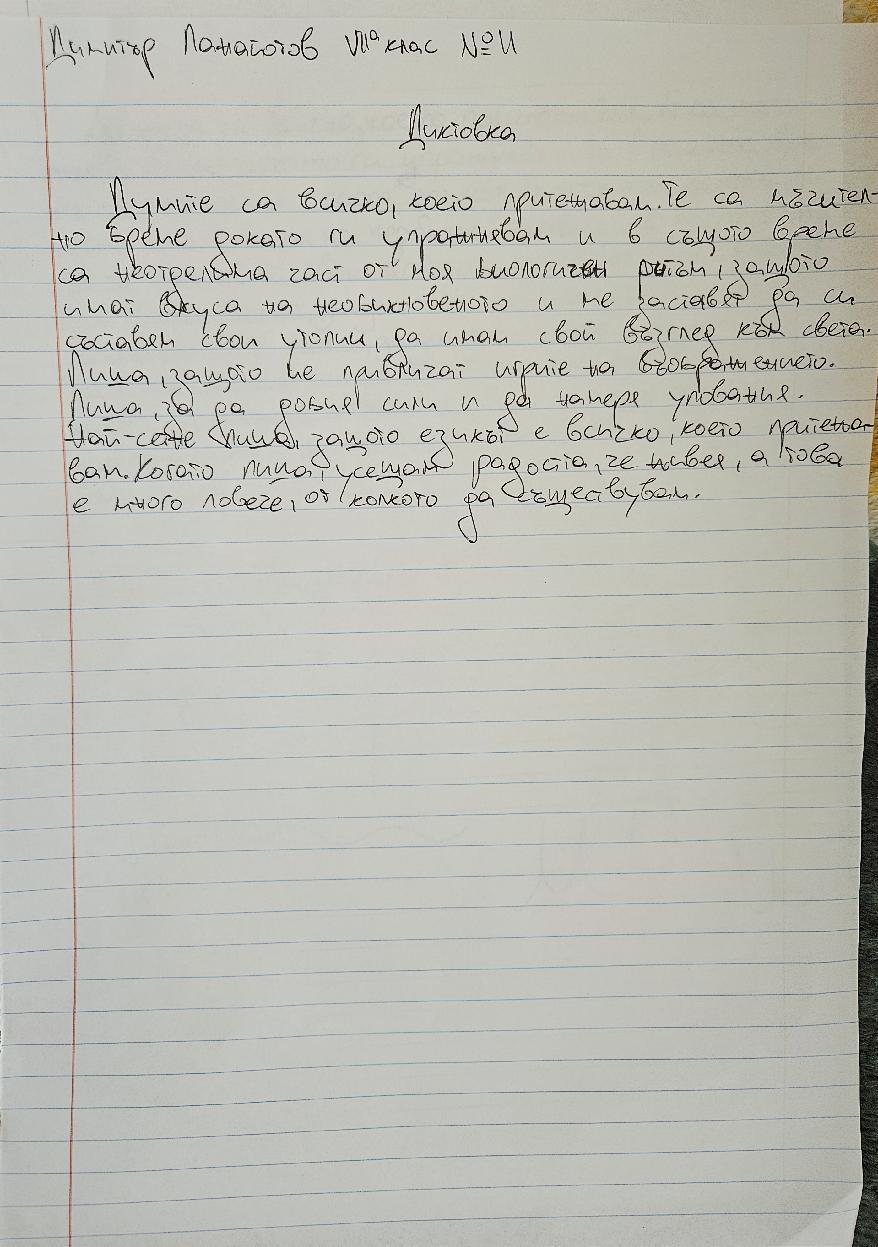 Димитър Панайотов VIIа клас №11
Диктовка
Думите са всичко, което притежавам. Те са мъчител-
но бреме докато ги упражнявам и в същото време
са неотделима част от моя биологичен ритъм, защото
имат вкуса на необикновеното и ме заставят да си
съставям свои утопии, да имам свой възглед към света.
Пиша, защото ме привличат игрите на въображението.
Пиша, за да добия сили и да намеря упование.
Най-сетне пиша, защото езикът е всичко, което притежа-
вам. Когато пиша, усещам радостта, че живея, а това
е много повече, от колкото да съществувам.